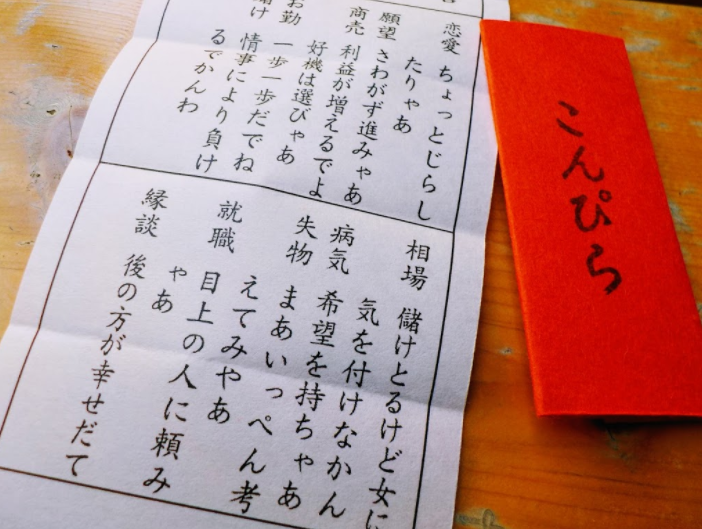 恋愛 ちょっとじらし
たりゃあ
願望 さわがず進みゃあ
商売 利益が増えるでよ
好機は選びゃあ
お勤 一歩一歩だでね
け 情事により負け
るでかんわ
相場 儲けとるけど女に
気を付けなかん
病気 希望を持ちゃあ
失物 まあいっぺん考
えてみやあ
就職 目上の人に頼み
ゃあ
縁談 後の方が幸せだて
こんぴら